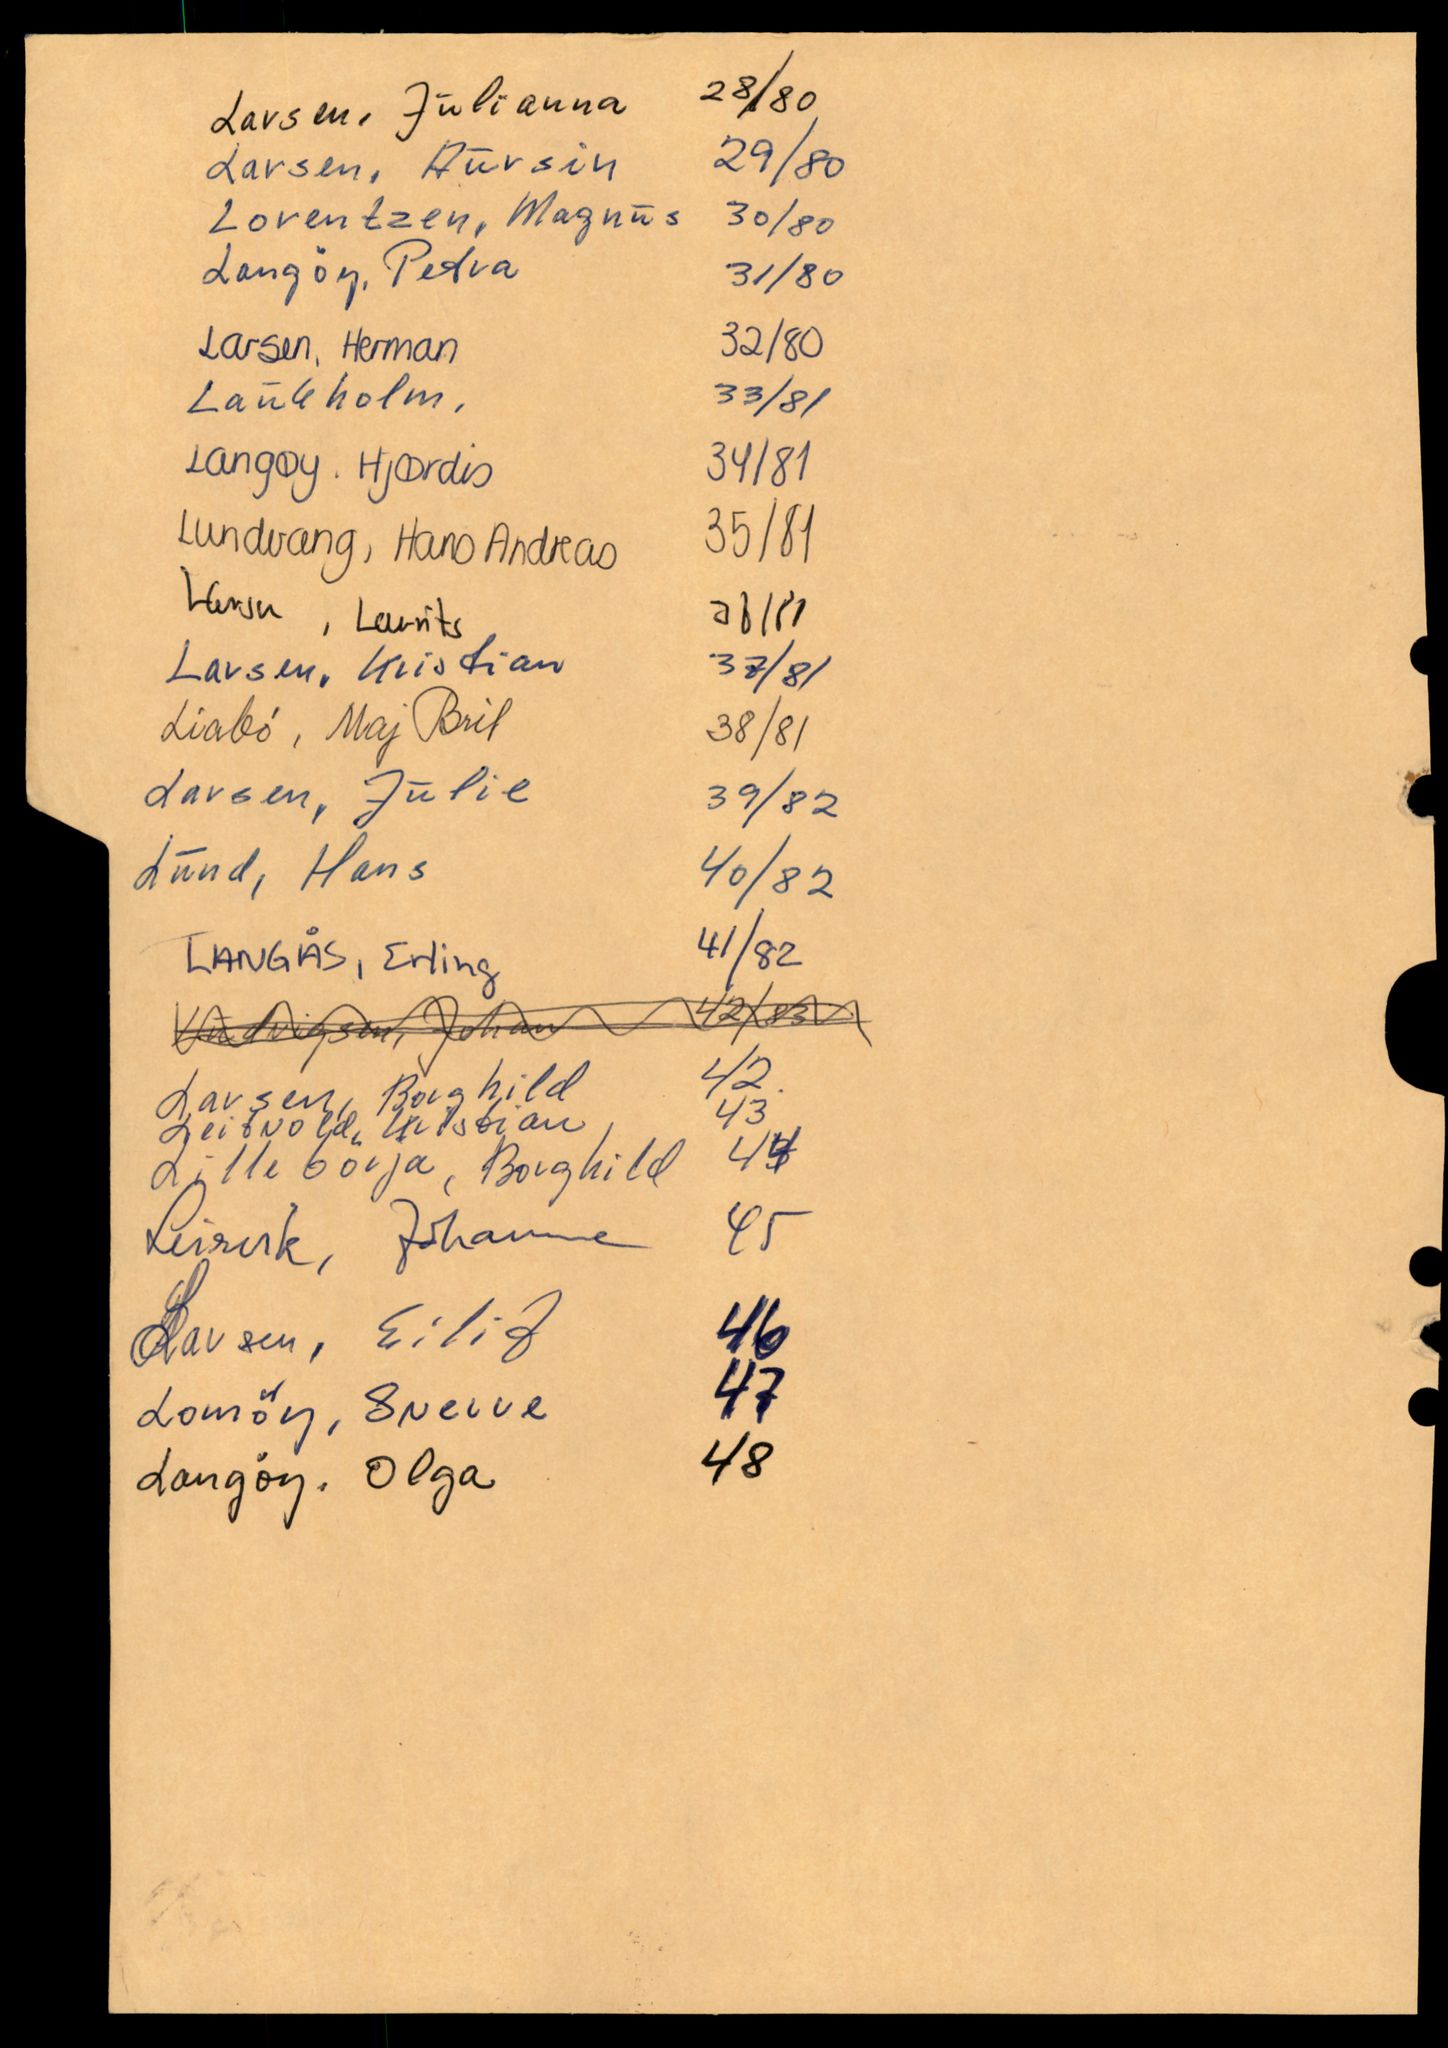 Larsen, Julianna 28/80
Larsen, Aursin 29/80
Lorentzen, Magnus 30/80
Langöy, Petra 31/80
Larsen, Herman 32/80
Laukholm, 33/81
Langøy. Hjørdis 34/81
Lundvang, Hans Andreas 35/81
Larsen, Laurits 36/81
Larsen, Kristian 37/81
Liabö, Maj Bril 38/81
Larsen, Julie 39/82
Lund, Hans 40/82
LANGÅS, Erling 41/82
Ludvigsen, Johan 42/83
Larsen, Borghild 42.
Leitvold, Kristian, 43
Lillebörja, Borghild 44
Johanne 45
Larsen, Eilif 46
Lomöy, Sverre 47
Langöy. Olga 48